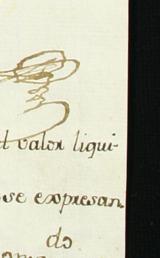 el valor liqui-
se expresan
do